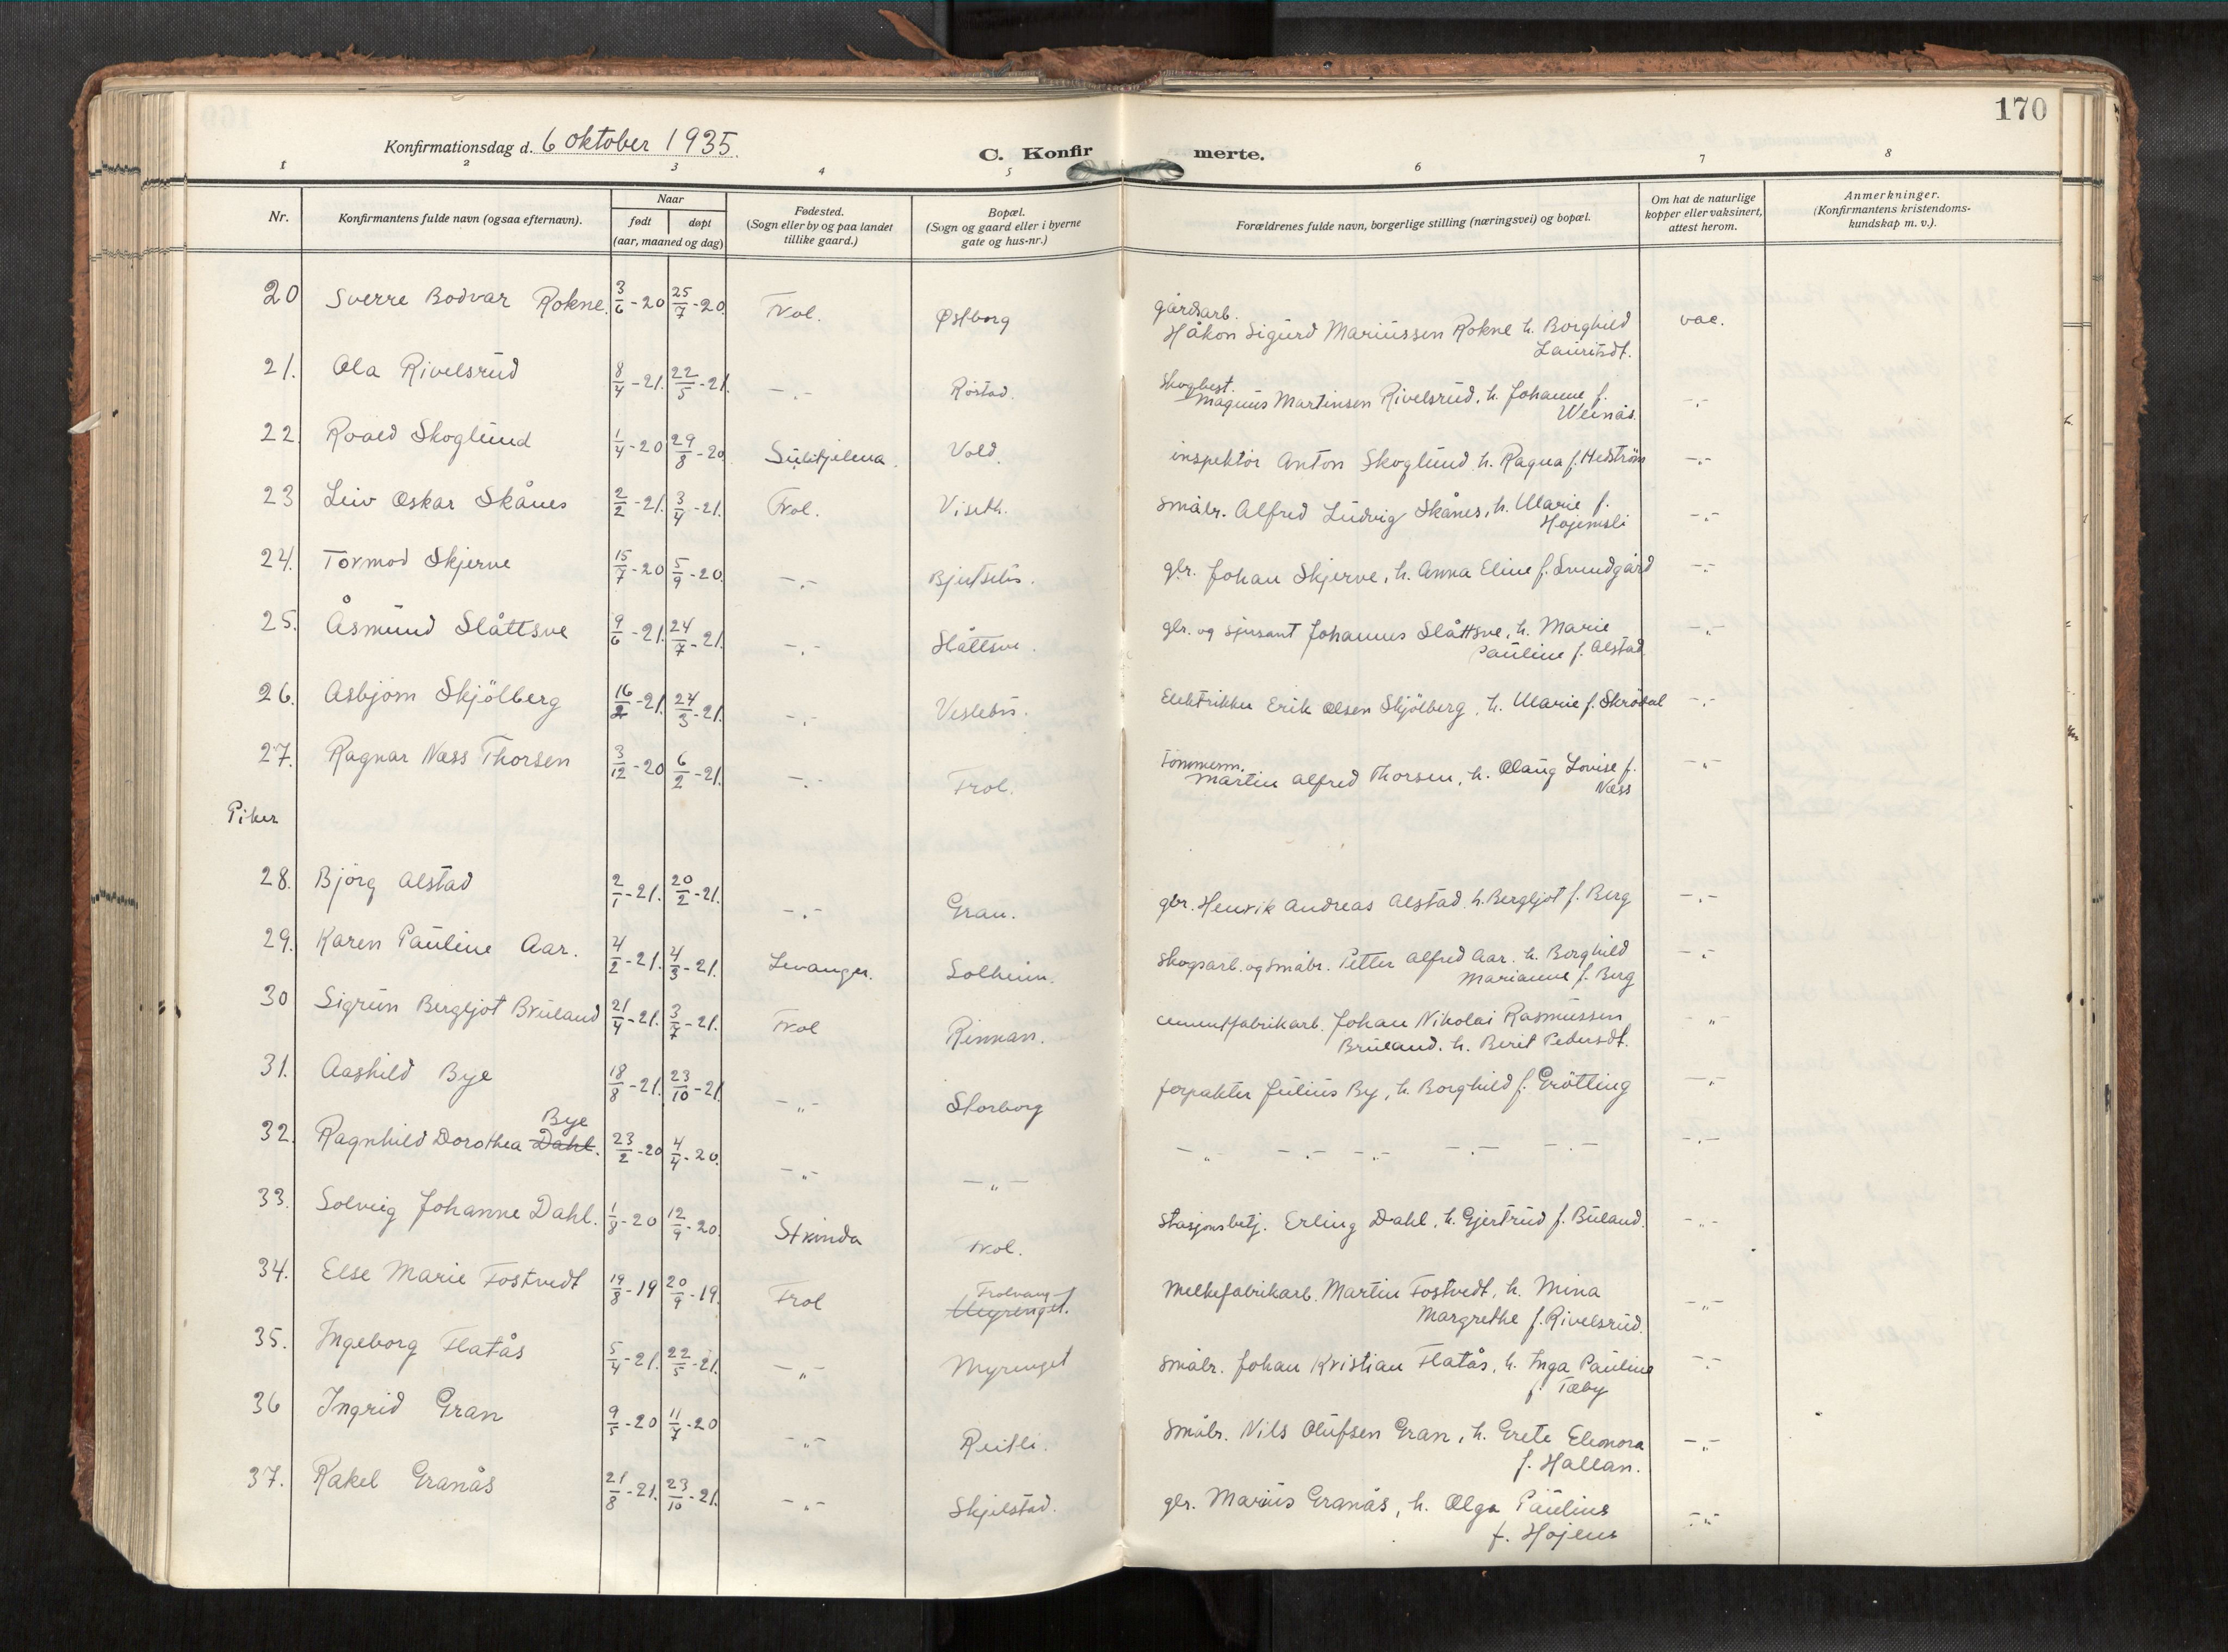 170
Konfirmationsdag d. 6 oktober 1935.
C. Konfirmerte.
1 2 3 4 5 6 7 8
Nr.
Konfirmantens fulde navn (ogsaa efternavn).
Naar
født døpt
(aar, maaned og dag)
Fødested.
(Sogn eller by og paa landet
tillike gaard.)
Bopæl.
(Sogn og gaard eller i byerne
gate og hus-nr.)
Forældrenes fulde navn, borgerlige stilling (næringsvei) og bopæl.
Om hat de naturlige
kopper eller vaksinert,
attest herom.
Anmerkninger.
(Konfirmantens kristendoms-
kundskap m. v.).
20 Sverre Bodvar Rokne. 3/6-20 25/7-20. Frol. Østborg gårdsarb.
Håkon Sigurd Mariussen Rokne h. Borghild vac.
Lauritsdt.
21. Ola Rivelsrud 8/4-21. 22/5-21. -.- Røstad. Skogbest.
Magnus Martinsen Rivelsrud, h. Johanne f. -.-
Weinås.
22. Roald Skoglund 1/4-20 29/8-20 Sulitjelma. Vold. inspektør Anton Skoglund h. Ragna f. Hedström -.-
23 Leiv Oskar Skånes 2/2-21. 3/4-21. Frol. Viseth. småbr. Alfred Ludvig Skånes, h. Marie f. -.-
Hojemsli
24. Tormod Skjerve 15/7-20 5/9-20. -.- gbr. Johan Skjerve, h. Anna Eline f. Svendgård -.-
25. Åsmund Slåttsve 9/6-21. 24/7-21. -.- Slåttsve. gbr. og sjersant Johannes Slåttsve, h. Marie -„-
Pauline f. Alstad.
26. Asbjørn Skjölberg 16/2-21. 24/3-21. -.- Veslebo. Elektriker Erik Olsen Skjölberg, h. Marie f. Skrödal -.-
27. Ragnar Næss Thorsen 3/12-20 6/2-21. -.- Frol. Tømmerm.
Martin Alfred Thorsen, h. Olaug Lovise f. -„-
Næss
Piker
28. Bjørg Alstad 2/1-21. 20/2-21. -.- Gran. gbr. Henrik Andreas Alstad h. Bergljot f. Berg -.-
29. Karen Pauline Aar. 4/2-21. 4/3-21. Levanger. Solheim. Skogsarb. og småbr. Petter Alfred Aar. h. Borghild -.-
Marianne f. Berg
30 Sigrun Bergljot Bruland 21/4-21. 3/7-21. Frol Rinnan. cementfabrikarb. Johan Nikolai Rasmussen -„-
Bruland. h. Berit Pedersdt.
31. Aashild Bye 18/8-21. 23/10-21. -„- Storborg forpakter Julius By, h. Borghild f. Grötting -.-
Bye
32. Ragnhild Dorothea Dahl. 23/2-20 4/4-20. -„- -„- -„- -.- -.- -.- -.- -.-
33. Solveig Johanne Dahl. 1/8-20 12/9-20. Strinda Frol. Stasjonsbetj. Erling Dahl, h. Gjertrud f. Buland. -„-
34. Else Marie Fostvedt 19/8-19 20/9-19. Frol Frolvang
Myrenget. Melkefabrikarb. Martin Fostvedt, h. Mina -„-
Margrethe f. Rivelsrud.
35. Ingeborg Flatås 5/4-21. 22/5-21. -„- Myrenget småbr. Johan Kristian Flatås, h. Inga Pauline -.-
f. Tæby
36 Ingrid Gran 9/5-20 11/7-20 -„- Reitli. småbr. Nils Olufsen Gran, h. Grete Eleonora -„-
f. Hallan.
37. Rakel Granås 21/8-21. 23/10-21. -„- Skjelstad. gbr. Marius Granås, h. Olga Pauline -„-
f. Hojem